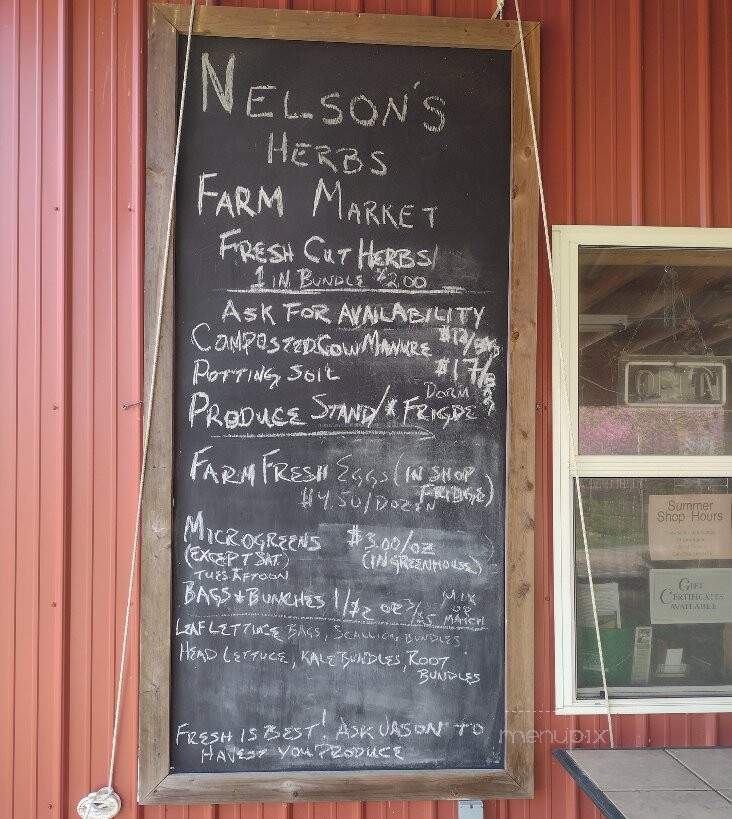 NELSON'S
HERBS
FARM MARKET
FRESH CUT HERBS/
1 IN BUNDLE $2.00
ASK FOR AVAILABILITY
COMPOSTED COW MANURE
POTTING SOIL $17/
PRODUCE STAND/* DORM FRIGDE
FARM FRESH EGGS (IN SHOP FRIDGE)
$4.50/DOZEN
MICROGREENS $3.00/OZ
(EXCEPT SAT) (IN GREENHOUSE)
TUES AFTOON
BAGS & BUNCHES 1/$2 OR 3/$5 MIX OR MATCH
LEAF LETTUCE BAGS, SCALLION BUNDLES
HEAD LETTUCE, KALE BUNDLES, ROOT BUNDLES
FRESH IS BEST! ASK JASON TO
HAVEST YOU PRODUCE
OPEN
Summer
Shop Hours
GIFT
CERTIFICATES
AVAILABLE
menupix